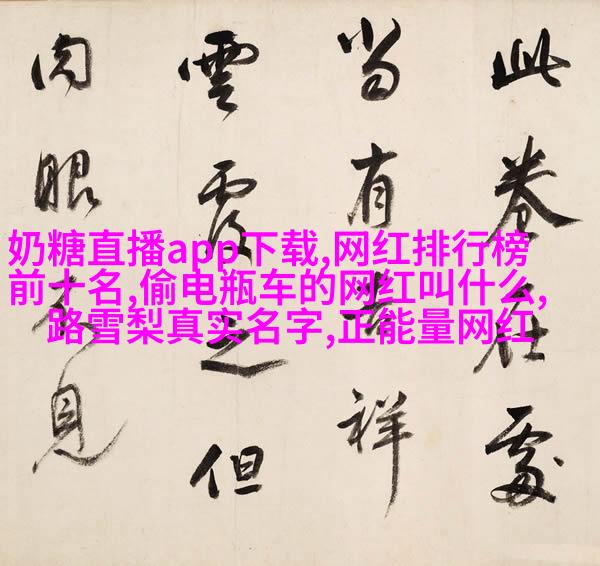 此卷在處
当有吉祥
雲覆之但
肉眼不見
奶糖直播app下载,网红排行榜
前十名,偷电瓶车的网红叫什么,
路雪梨真实名字,正能量网红